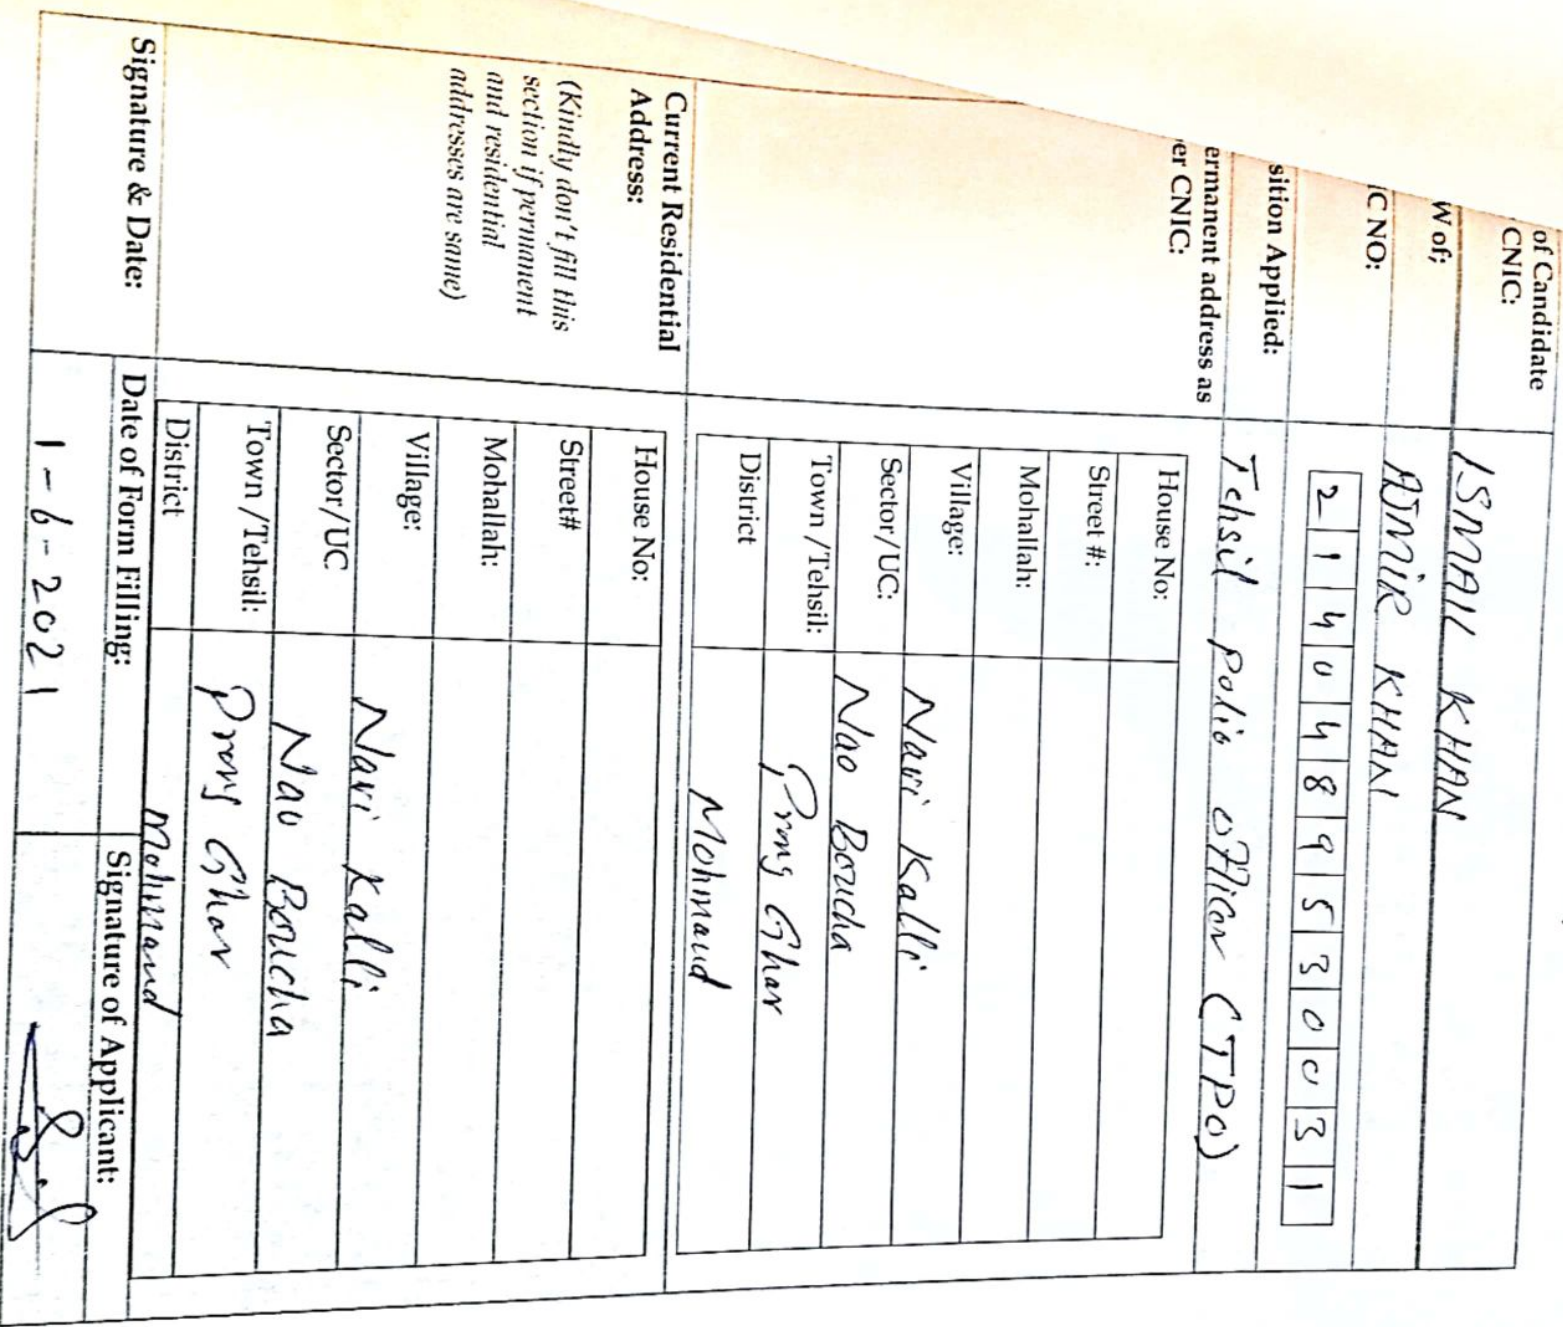 of Candidate
CNIC:
ISMAIL KHAN
W of;
AJMIR KHAN
IC NO:
2 1 4 0 4 8 9 5 3 0 0 3 1
sition Applied:
Tehsil Polio officer (TPO)
ermanent address as
er CNIC:
House No:
Street #:
Mohallah:
Village: Navi Kalli
Sector/UC: Nao Boucha
Town /Tehsil: Prang Ghar
District Mohmand
Current Residential
Address:
(Kindly don't fill this
section if permanent
and residential
addresses are same)
House No:
Street#
Mohallah:
Village: Navi Kalli
Sector/UC Nao Boucha
Town /Tehsil: Prang Ghar
District Mohmand
Signature & Date:
Date of Form Filling:
1-6-2021
Signature of Applicant: